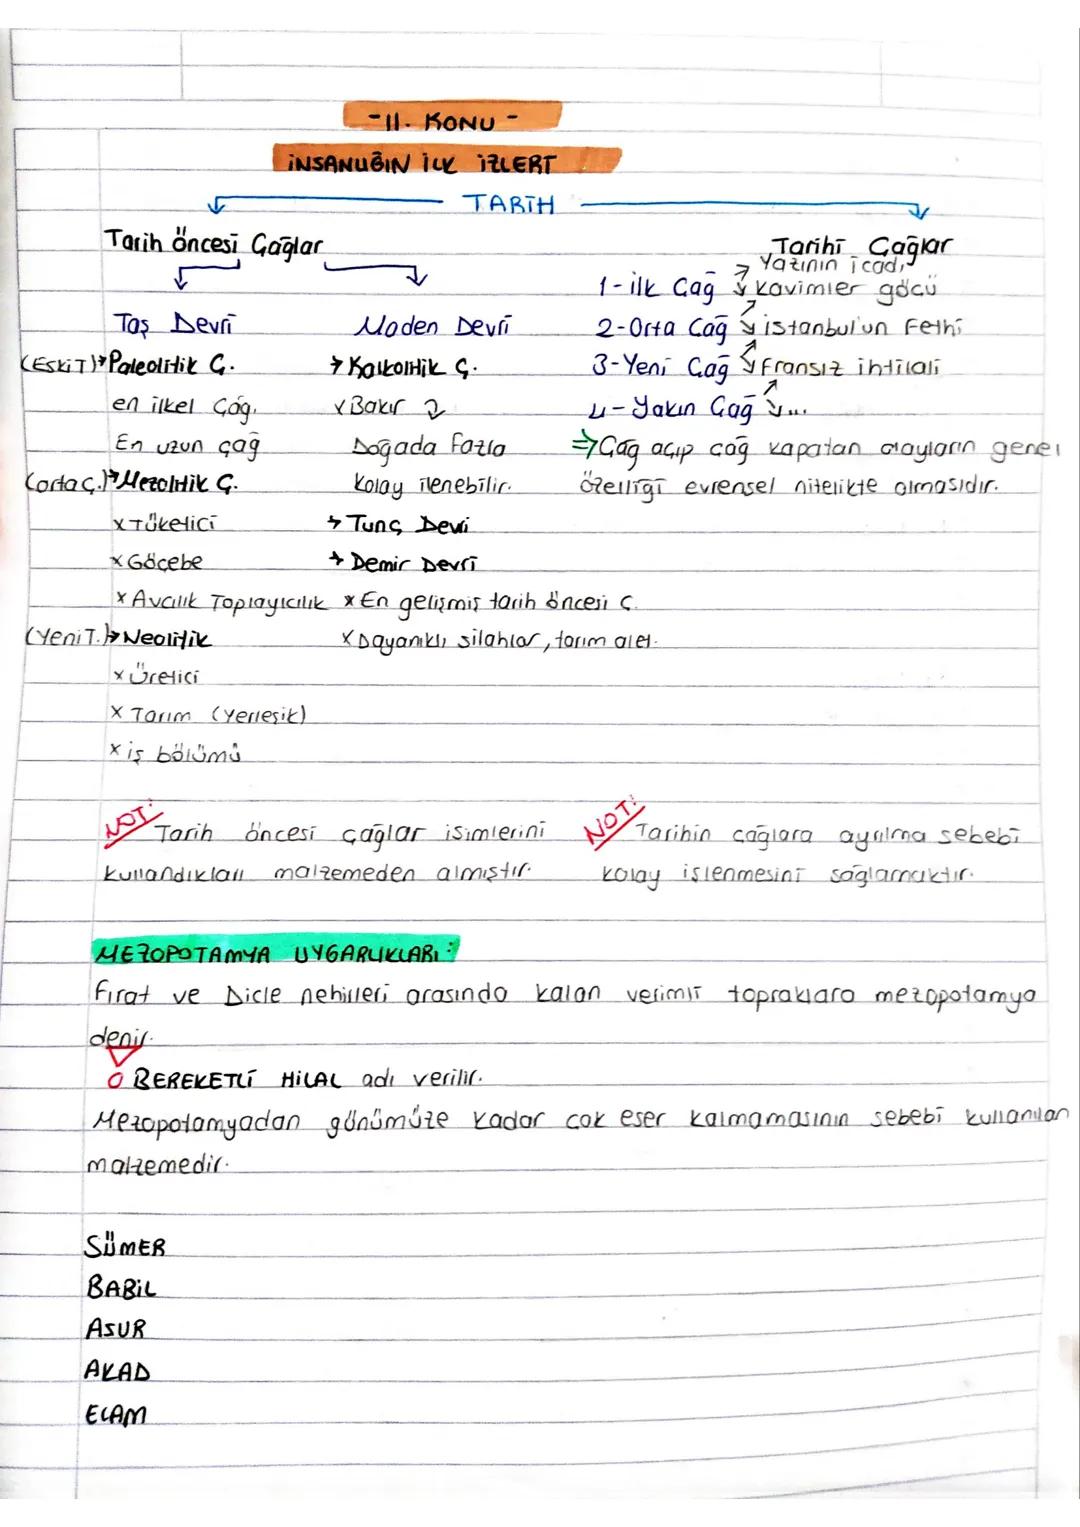 -II. KONU-
İNSANLIĞIN İLK İZLERİ
TARİH
Tarih Öncesi Çağlar
Tarihi Çağlar
Taş Devri
Maden Devri
(Eski T) → Paleolitik Ç.
en ilkel çağ.
En uzun çağ
(orta ç.) → Mezolitik Ç.
x Tüketici
x Göçebe
x Avcılık Toplayıcılık
(Yeni T.) → Neolitik
x Üretici
x Tarım (Yerleşik)
x iş bölümü
→ Kalkolitik Ç.
x Bakır
Doğada fazla
Kolay ilenebilir.
→ Tunç Devri
→ Demir Devri
x En gelişmiş tarih öncesi ç.
x Dayanıklı silahlar, tarım alet.
Yazının icadı
1-İlk Çağ Kavimler göçü
2-Orta Çağ istanbul'un Fethi
3-Yeni Çağ Fransız ihtilali
4-Yakın Çağ ...
⇒ Çağ açıp çağ kapatan olayların genel
özelliği evrensel nitelikte olmasıdır.
NOT: Tarih öncesi çağlar isimlerini
kullandıkları malzemeden almıştır.
NOT: Tarihin çağlara ayrılma sebebi
kolay işlenmesini sağlamaktır.
MEZOPOTAMYA UYGARLIKLARI:
Fırat ve Dicle nehirleri arasında kalan verimli topraklara mezopotamya
denir.
BEREKETLİ HİLAL adı verilir.
Mezopotamyadan günümüze kadar çok eser kalmamasının sebebi kullanılan
malzemedir.
SÜMER
BABİL
ASUR
AKAD
ELAM